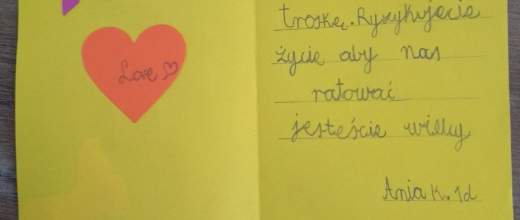 Love ♡
troskę. Ryzykujecie
życie aby nas
ratować
jesteście wielcy
Ania K. 1d